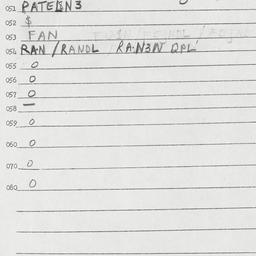 051 PATELIN3
052 $
053 FAN
054 RAN / RANDL / RAN3N DPL
055 0
056 0
057 0
058 —
059 0
060 0
070 0
080 0